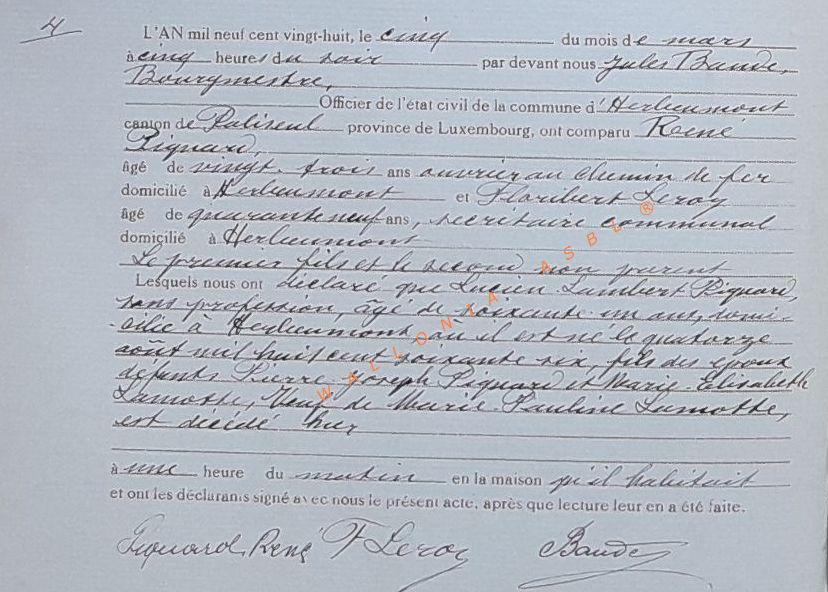 4
L'AN mil neuf cent vingt-huit, le cinq du mois de mars
à cinq heures du soir par devant nous Jules Baude,
Bourgmestre,
Officier de l'état civil de la commune d'Herbeumont
canton de Paliseul province de Luxembourg, ont comparu René
Piquard,
âgé de vingt-trois ans ouvrier au chemin de fer
domicilié à Herbeumont et Floribert Leroy
âgé de quarante neuf ans, secrétaire communal
domicilié à Herbeumont
Le premier fils et le second non parent
Lesquels nous ont déclaré que Lucien Lambert Piquard,
sans profession, âgé de soixante-un ans, domi-
-cilié à Herbeumont où il est né le quatorze
août mil huit cent soixante six, fils des époux
défunts Pierre-Joseph Piquard et Marie-Elisabeth
Lamotte, Veuf de Marie-Pauline Lamotte,
est décédé hier
à une heure du matin en la maison qu'il habitait
et ont les déclarants signé avec nous le présent acte, après que lecture leur en a été faite.
Piquard René F Leroy Baude
WALLONIA ASBL ®